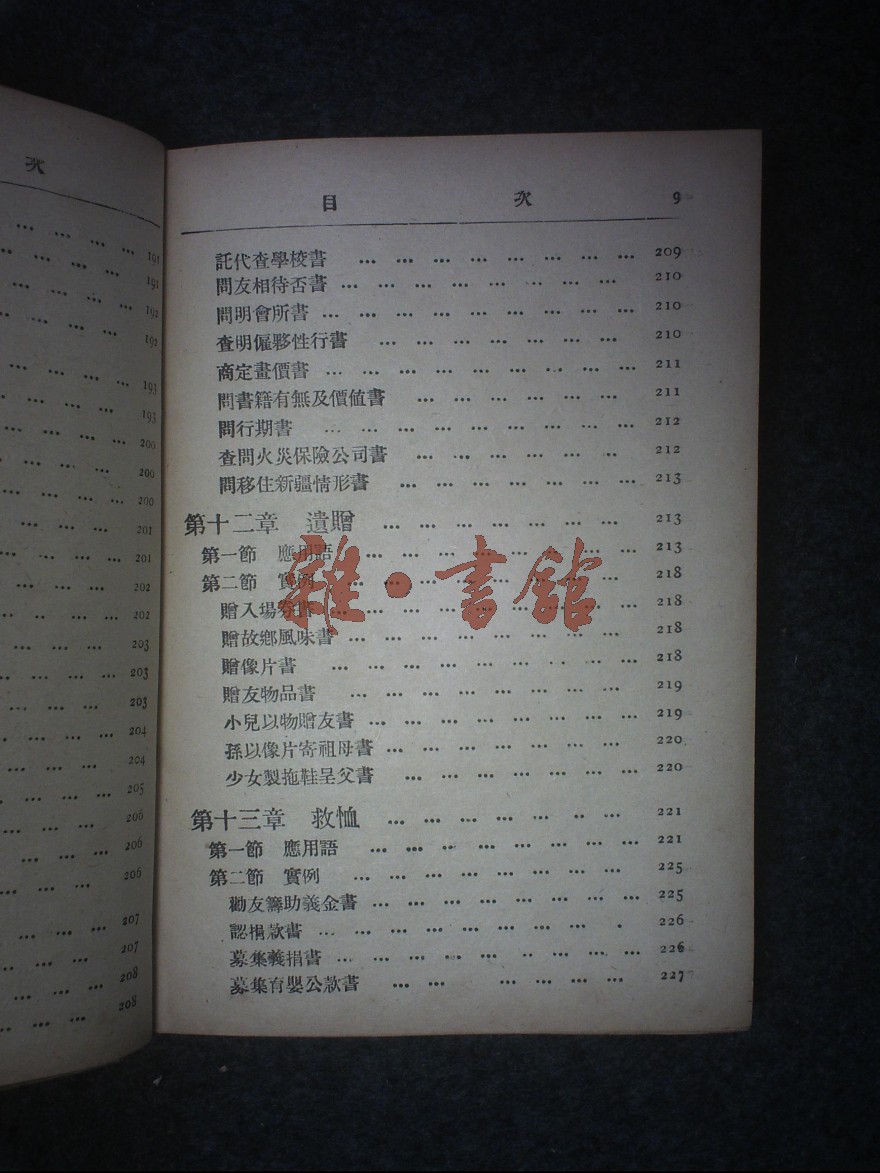 次
191
191
192
192
193
193
200
200
200
201
201
202
202
203
203
203
204
204
205
206
206
206
207
207
208
208
目 次 9
託代查學校書 … … … … … … … … 209
問友相待否書 … … … … … … … … 210
問明會所書 … … … … … … … … … 210
查明傭夥性行書 … … … … … … … 210
商定畫價書 … … … … … … … … … 211
問書籍有無及價值書 … … … … … … 211
問行期書 … … … … … … … … … 212
查問火災保險公司書 … … … … … … 212
問移住新疆情形書 … … … … … … … 213
第十二章 遺贈 … … … … … … … 213
第一節 應用語 … … … … … … … 213
第二節 實例 … … … … … … … … 218
贈入場券書 … … … … … … … … … 218
贈故鄉風味書 … … … … … … … … 218
贈像片書 … … … … … … … … … 218
贈友物品書 … … … … … … … … 219
小兒以物贈友書 … … … … … … … … 219
孫以像片寄祖母書 … … … … … … … 220
少女製拖鞋呈父書 … … … … … … … 220
第十三章 救恤 … … … … … … … 221
第一節 應用語 … … … … … … … … 221
第二節 實例 … … … … … … … … 225
勸友籌助義金書 … … … … … … … … 225
認捐款書 … … … … … … … … … 226
募集義捐書 … … … … … … … … … 226
募集育嬰公款書 … … … … … … … 227
雜·書館